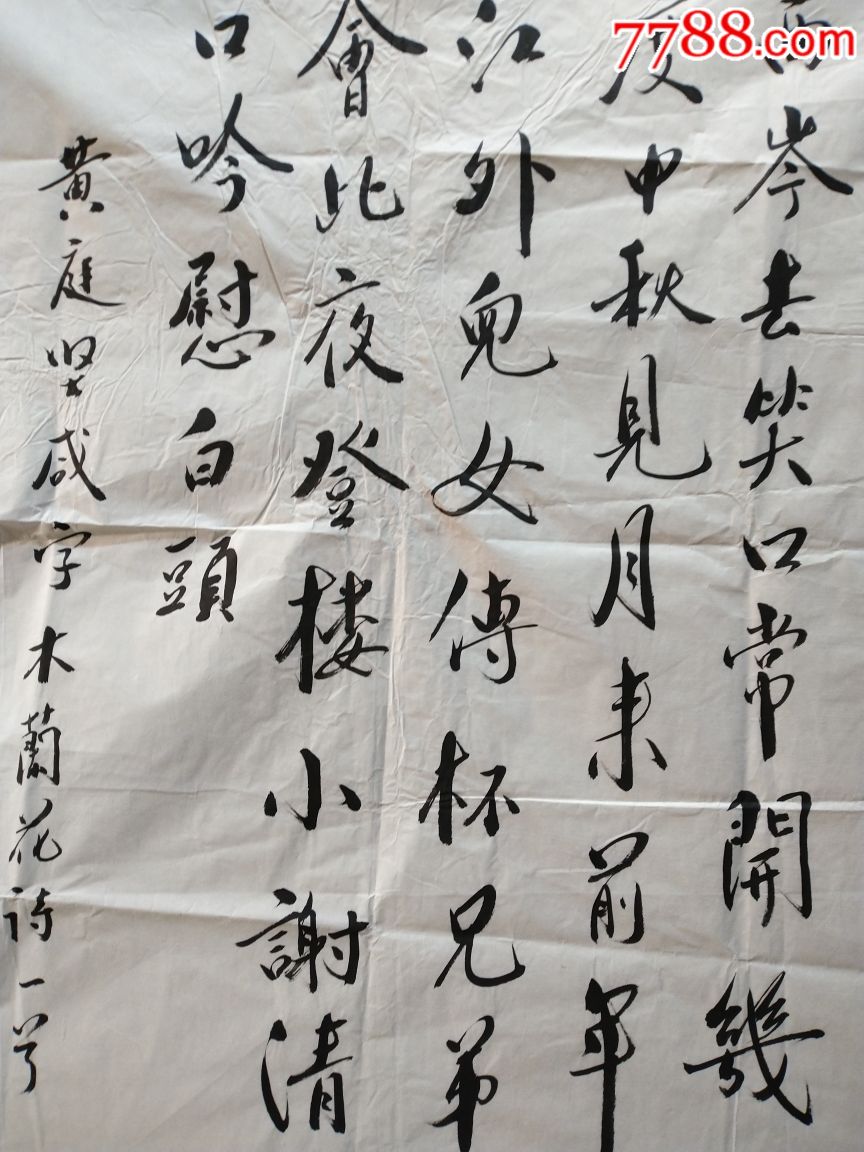 7788.com
西岑去笑口常開幾
度中秋見月来前年
江外兒女傳杯兄弟
會此夜登楼小謝清
口吟慰白頭
黄庭坚咸字木蘭花詩一首